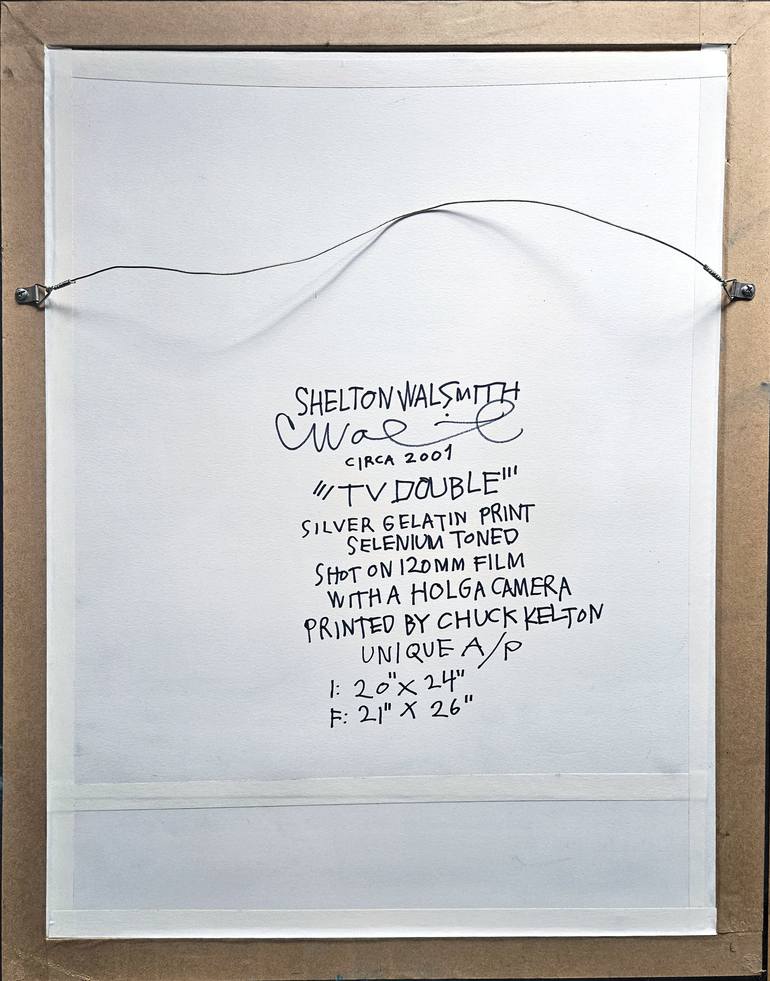 SHELTON WALSMITH
CIRCA 2001
"'TV DOUBLE"'
SILVER GELATIN PRINT
SELENIUM TONED
SHOT ON 120MM FILM
WITH A HOLGA CAMERA
PRINTED BY CHUCK KELTON
UNIQUE A/P
I: 20" X 24"
F: 21" X 26"